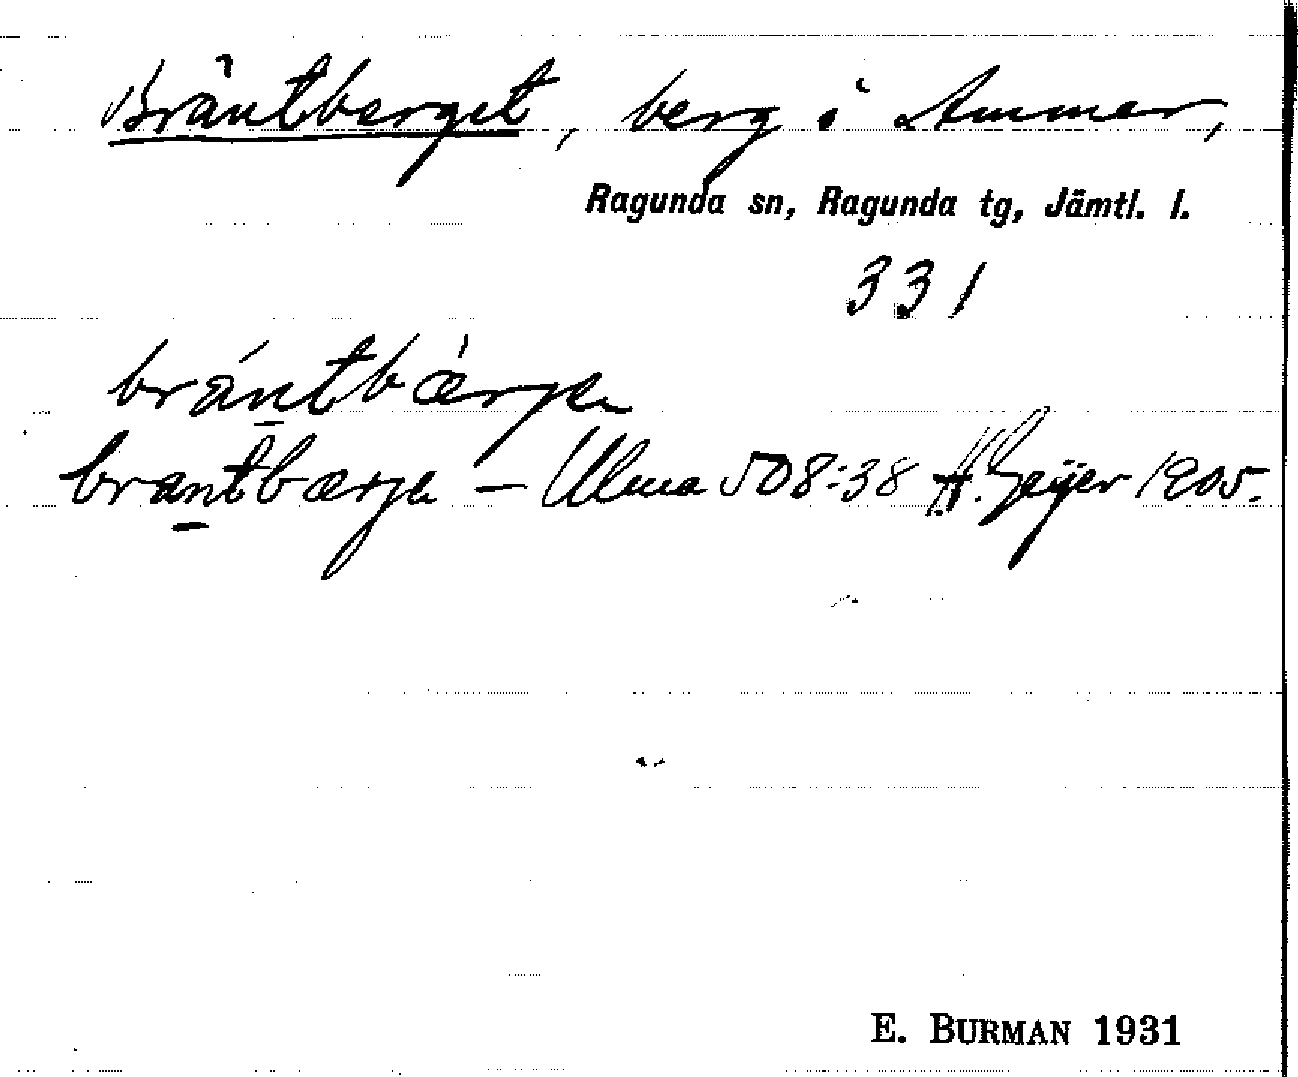 Bräntberget, berg i Ammer,
Ragunda sn, Ragunda tg, Jämtl. l.
331
brántbærje
brantbærje – Ulma 508:38 H. Geijer 1905.
E. BURMAN 1931